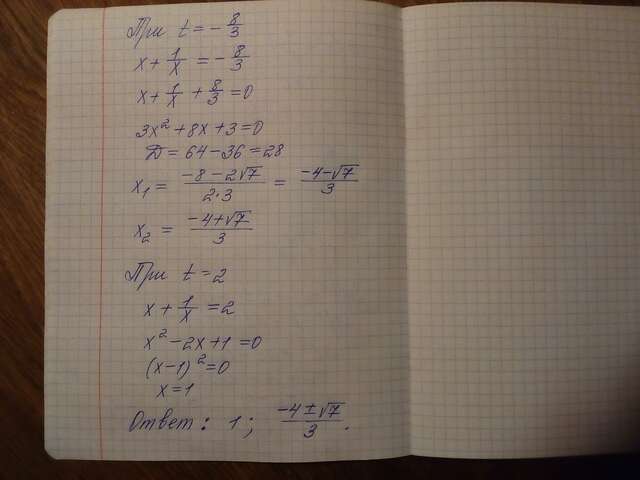 При t = -8/3
x + 1/x = -8/3
x + 1/x + 8/3 = 0
3x² + 8x + 3 = 0
D = 64 - 36 = 28
x₁ = (-8 - 2√7)/(2·3) = (-4 - √7)/3
x₂ = (-4 + √7)/3
При t = 2
x + 1/x = 2
x² - 2x + 1 = 0
(x - 1)² = 0
x = 1
Ответ: 1; (-4 ± √7)/3.